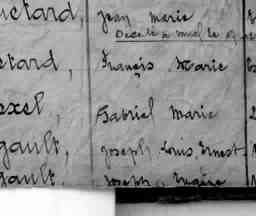 uctard, Jean Marie
Décédé à
ctard, François Marie
oxel, Gabriel Marie
gault, Joseph Louis Ernest
gault, Joseph Eugène